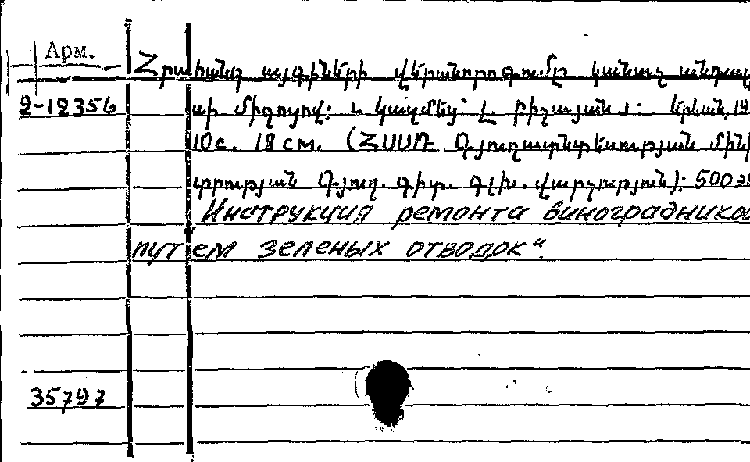 Арм.
Հրահանգ այգիների վերանորոգումը կանաչ անդալ
2-12356
սի միջոցով: Կազմեց՝ Հ. Երևան, 19
10с. 18 см. (ՀՍՍՌ Գյուղատնտեսության մինի
տրության Գյուղ. գիտ. գլխ. վարչություն): 500
Инструкция ремонта виноградников
путем зеленых отводок".
35797